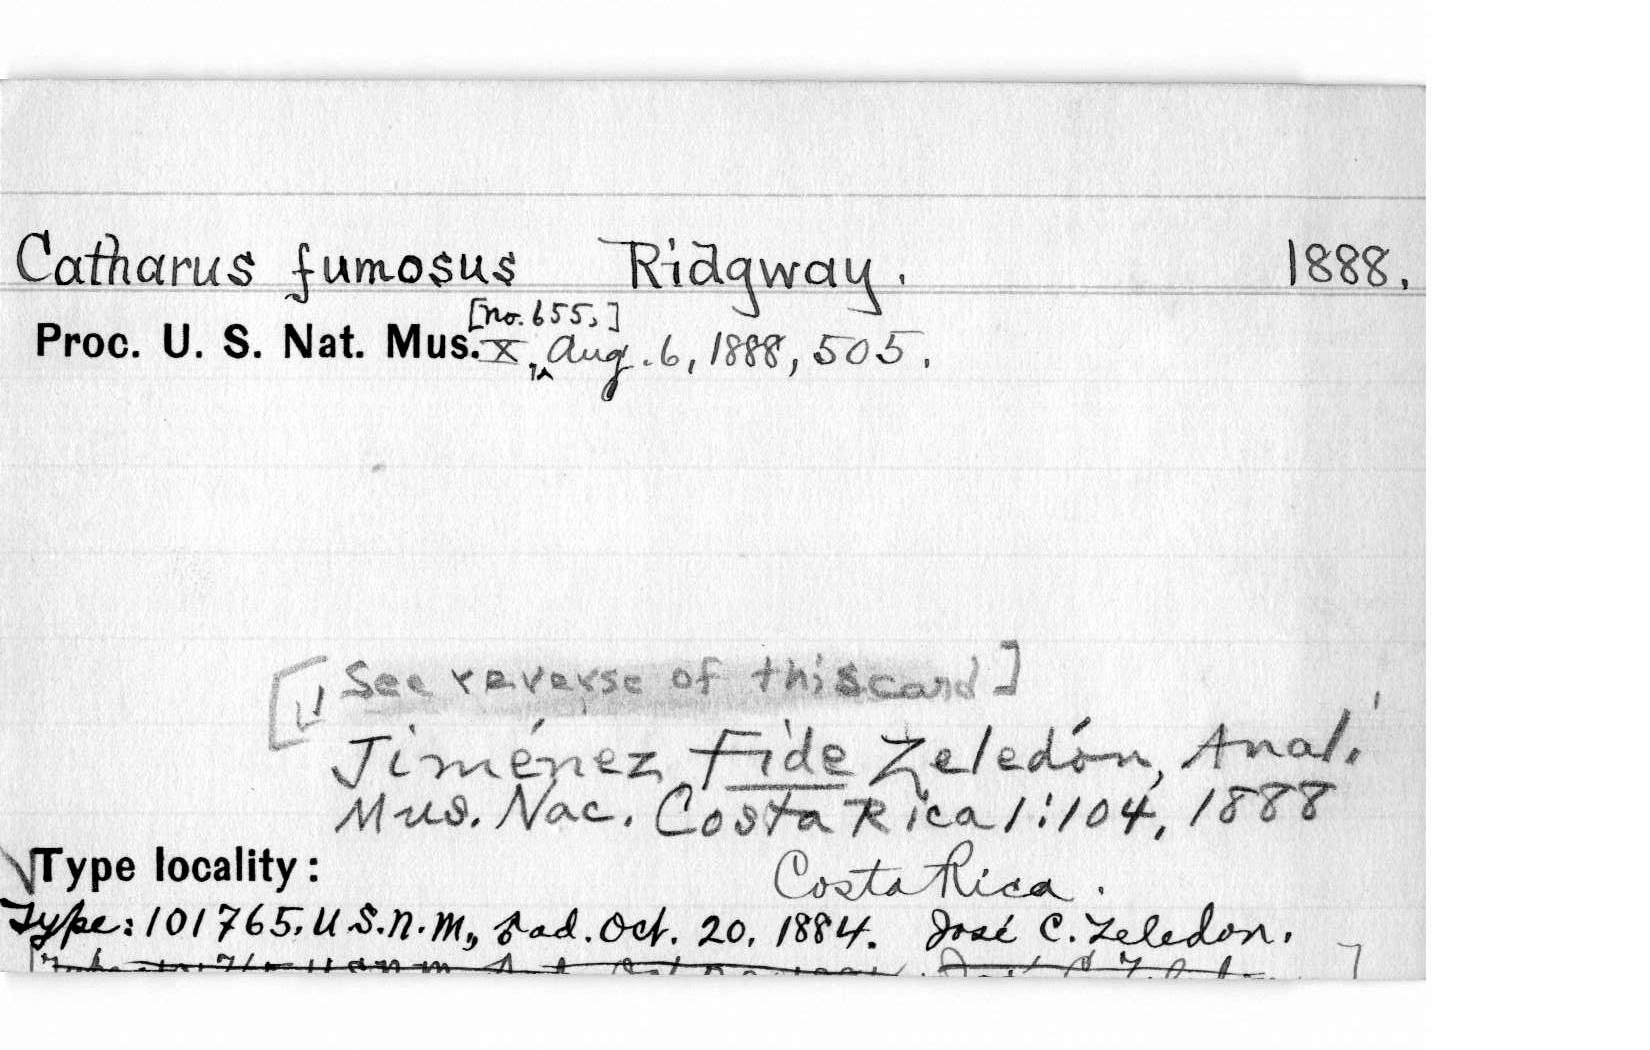 Catharus fumosus Ridgway. 1888.
[no. 655,]
Proc. U. S. Nat. Mus. X, Aug. 6, 1888, 505.
[See reverse of this card]
Jiménez Fide Zeledón, Anal.
Mus. Nac. Costa Rica 1:104, 1888
Type locality: Costa Rica.
Type: 101765, U.S.N.M., ad. Oct. 20, 1884. José C. Zeledon.